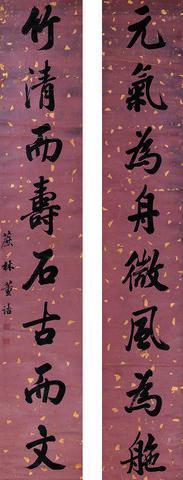 元氣為舟微風為䑨
竹清而壽石古而文
蔗林董誥